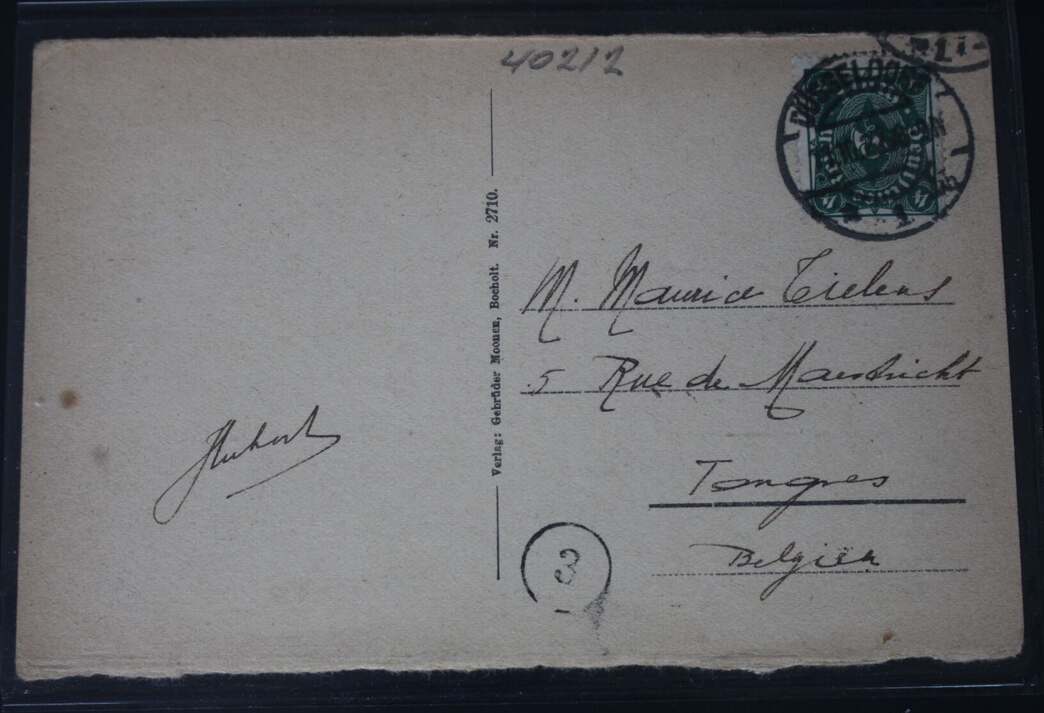 40212
DÜSSELDORF
1
Verlag: Gebrüder Moonen, Bocholt. Nr. 2710.
M. Maurice Tielens
5 Rue de Maestricht
Tongres
Belgien
Hubert
3